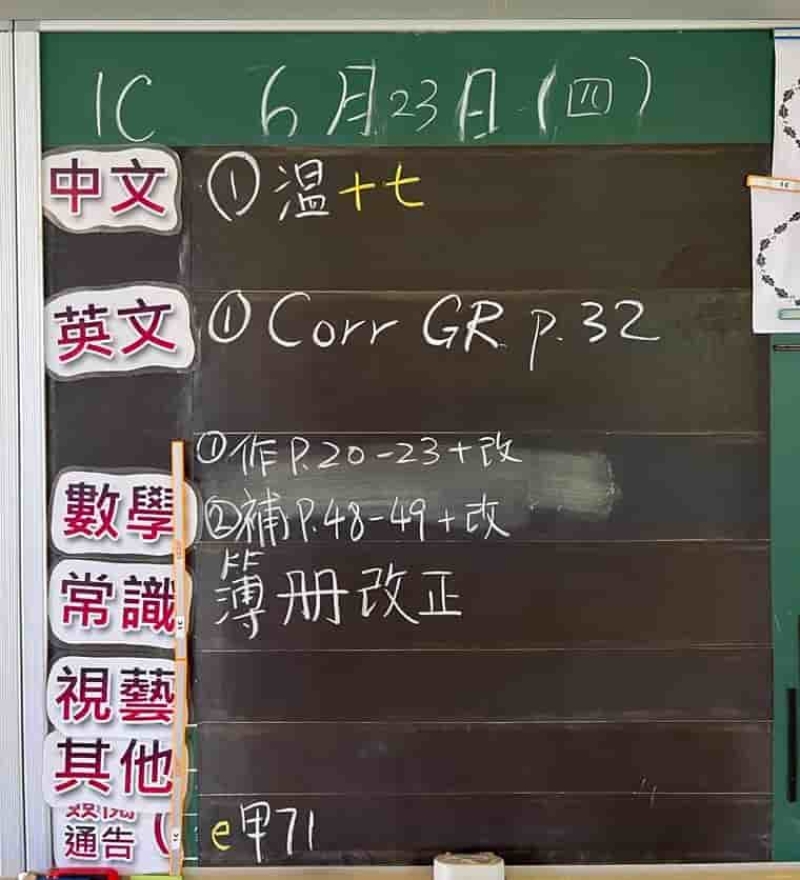 1C 6月23日(四)
中文 ①温十七
英文 ① Corr GR p.32
①作P.20-23+改
數學 ②補P.48-49+改
常識 簿册改正
視藝
其他
通告 e甲71